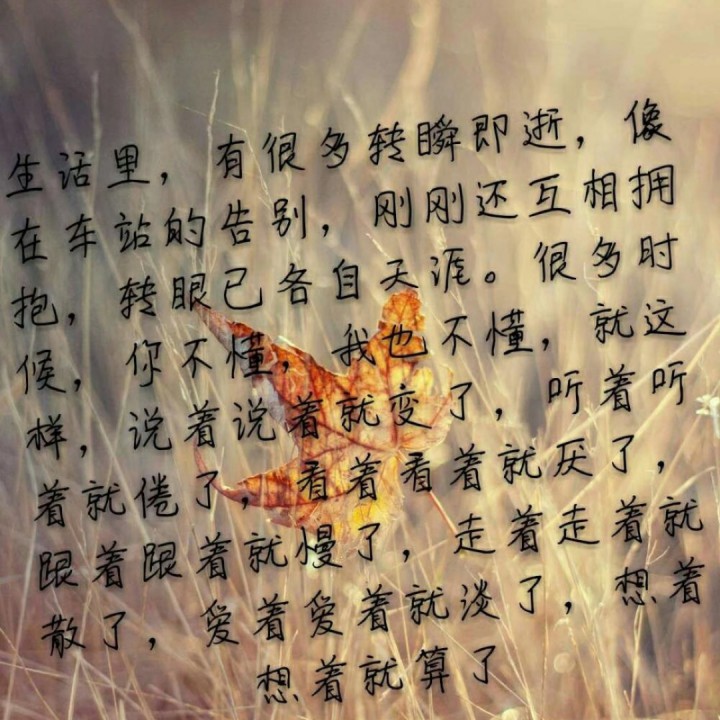 生活里，有很多转瞬即逝，像
在车站的告别，刚刚还互相拥
抱，转眼已各自天涯。很多时
候，你不懂，我也不懂，就这
样，说着说着就变了，听着听
着就倦了，看着看着就厌了，
跟着跟着就慢了，走着走着就
散了，爱着爱着就淡了，想着
想着就算了